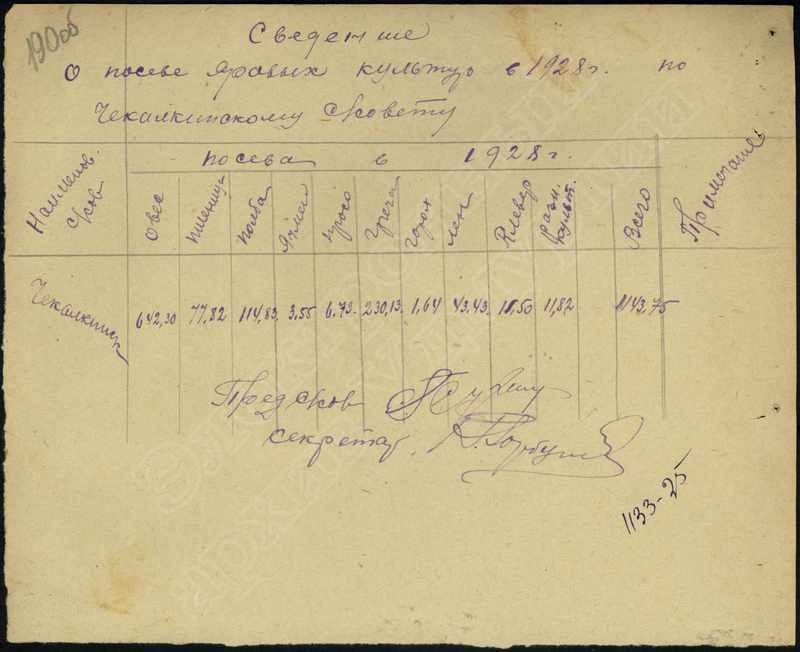 190об
Сведение
О посеве яровых культур в 1928 г. по
Чекалкинскому с/совету
Наименов. с/сов
посева в 1928 г.
Примечание
Овес Пшеница Полба Ячмен Просо Греча Горох Лен Клевер Разн. культ. Всего
Чекалкинск 642,30 77,82 114,83 3,55 6.73 230,13 1,64 43,43 11,50 11,82 1143,75
Пред с/сов
Секретар.
1133-25